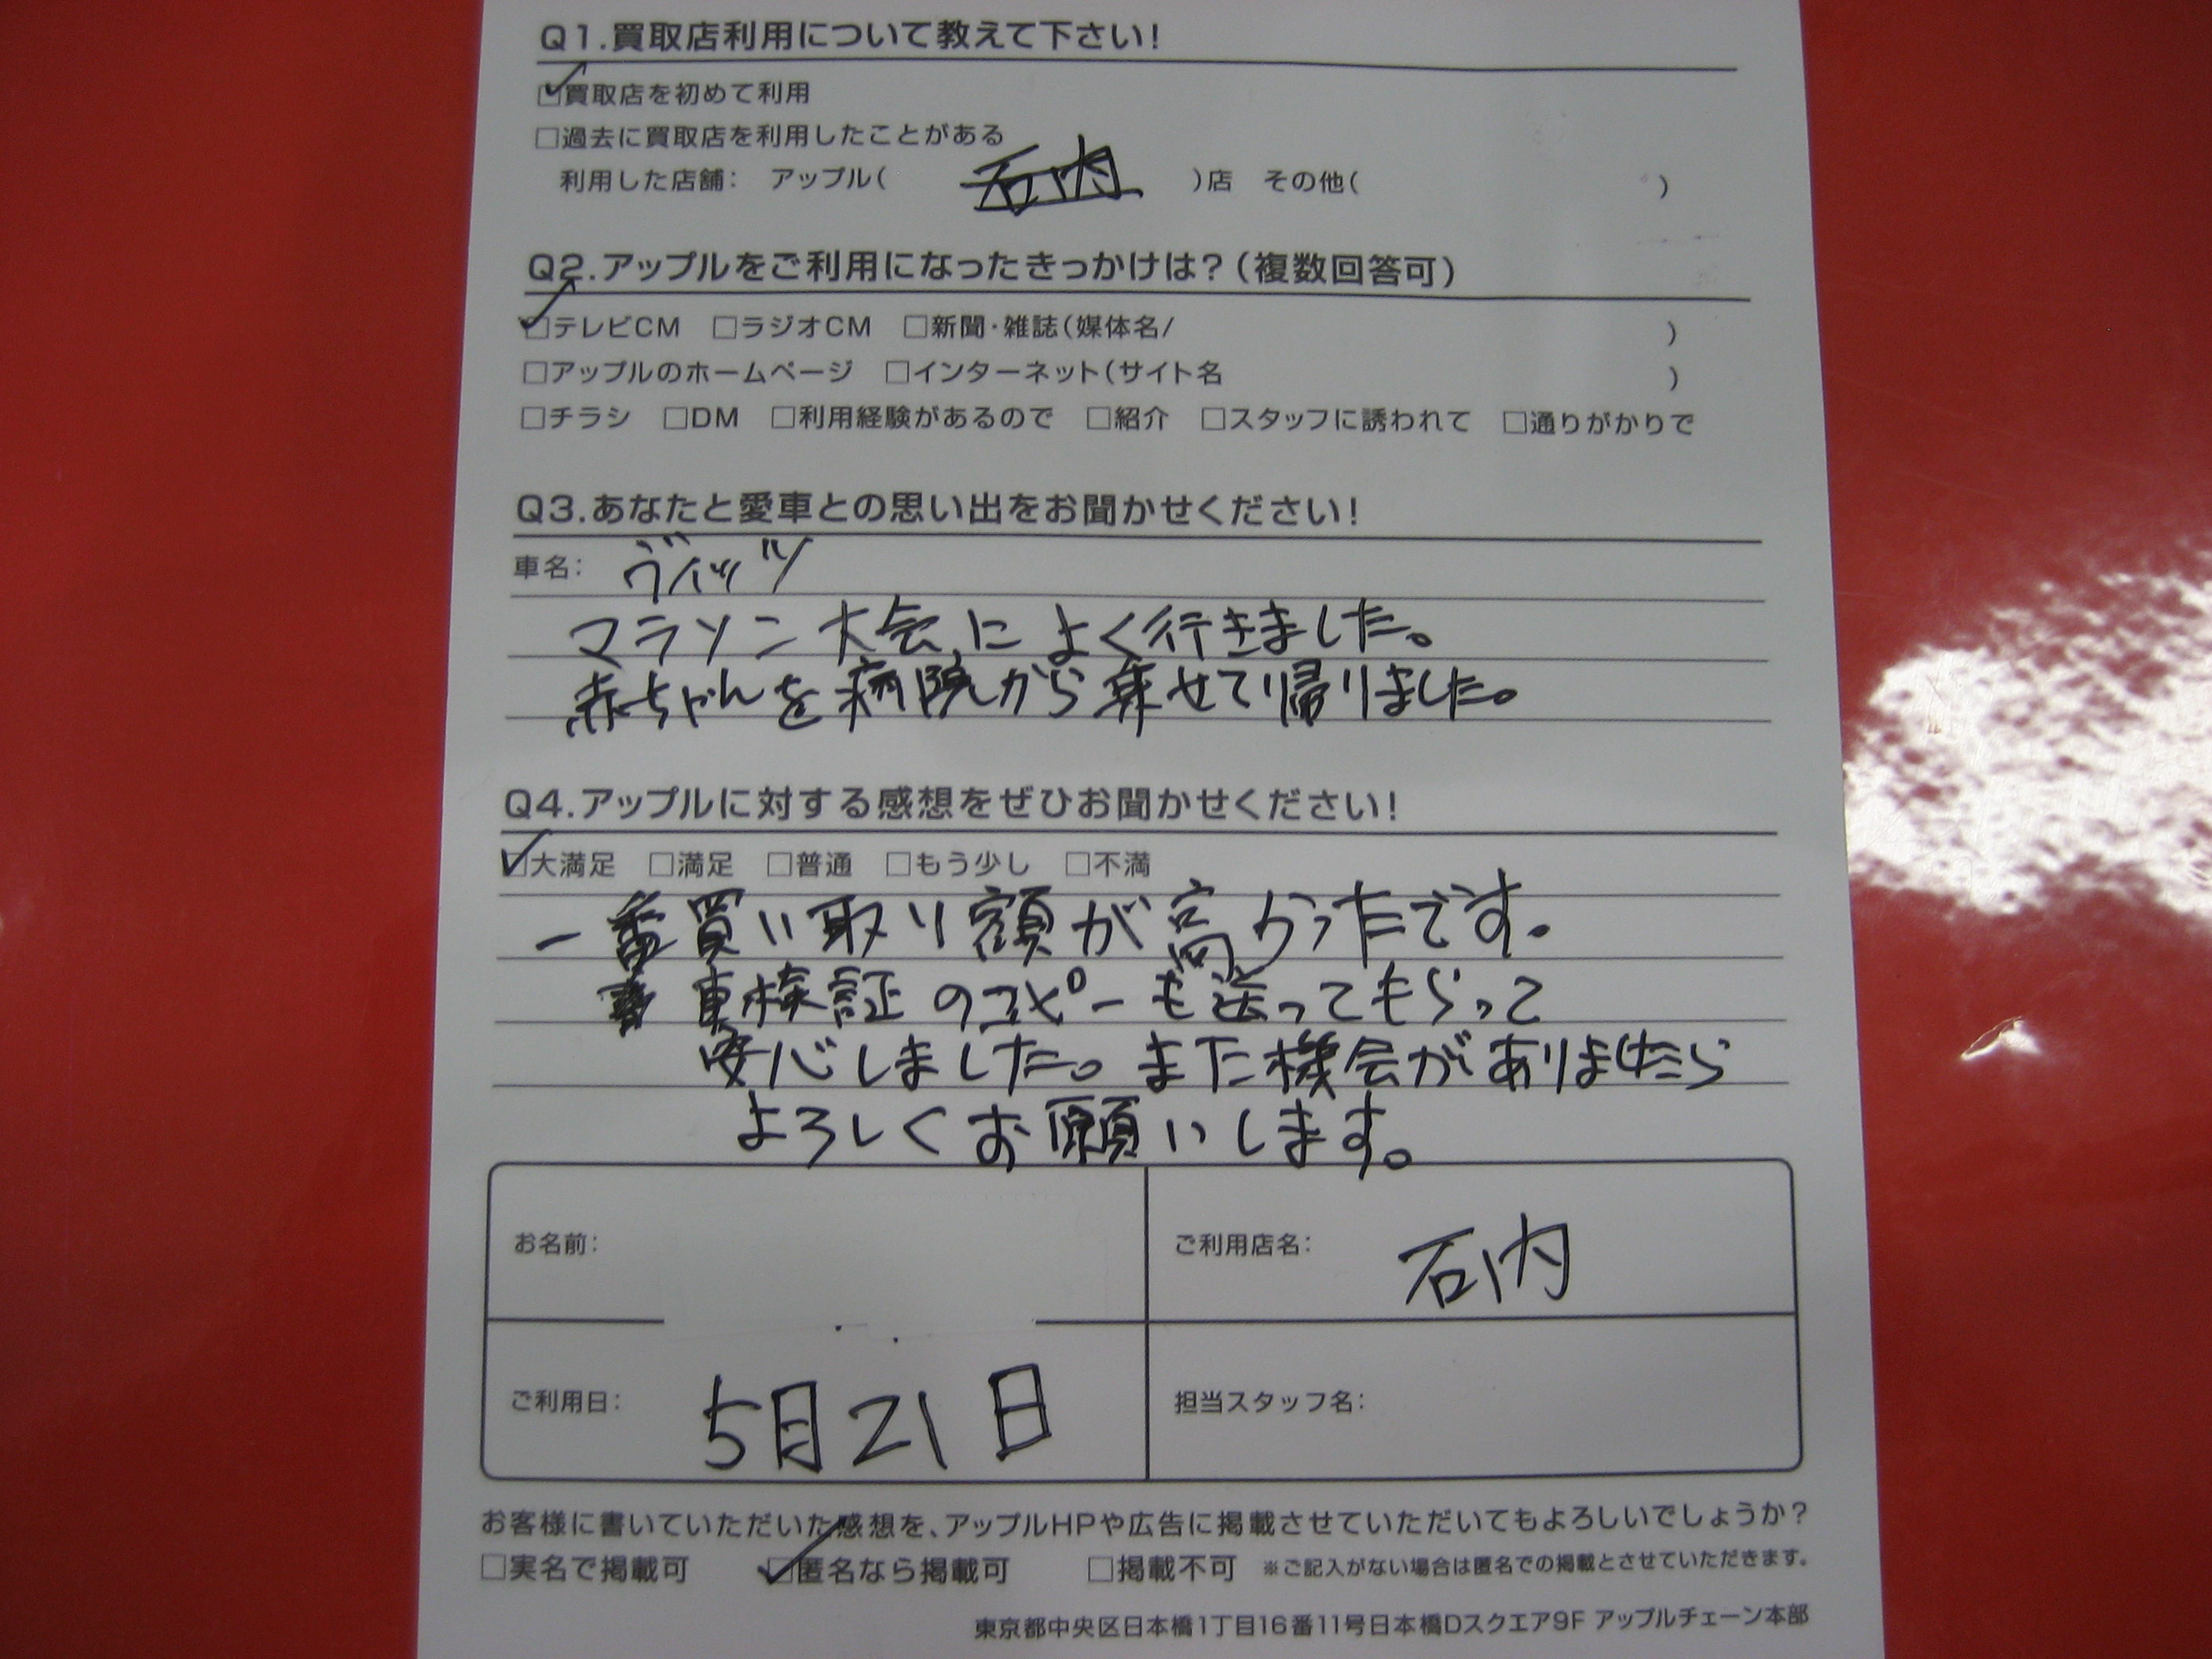 Q1.買取店利用について教えて下さい!
☑買取店を初めて利用
□過去に買取店を利用したことがある
利用した店舗: アップル( 石内 )店 その他( )
Q2.アップルをご利用になったきっかけは?(複数回答可)
☑テレビCM □ラジオCM □新聞・雑誌(媒体名/ )
□アップルのホームページ □インターネット(サイト名 )
□チラシ □DM □利用経験があるので □紹介 □スタッフに誘われて □通りがかりで
Q3.あなたと愛車との思い出をお聞かせください!
車名: ヴィッツ
マラソン大会によく行きました。
赤ちゃんを病院から乗せて帰りました。
Q4.アップルに対する感想をぜひお聞かせください!
☑大満足 □満足 □普通 □もう少し □不満
一番買い取り額が高かったです。
車検証のコピーも送ってもらって
安心しました。また機会がありましたら
よろしくお願いします。
お名前: ご利用店名: 石内
ご利用日: 5月21日 担当スタッフ名:
お客様に書いていただいた感想を、アップルHPや広告に掲載させていただいてもよろしいでしょうか?
□実名で掲載可 ☑匿名なら掲載可 □掲載不可 ※ご記入がない場合は匿名での掲載とさせていただきます。
東京都中央区日本橋1丁目16番11号日本橋Dスクエア9F アップルチェーン本部